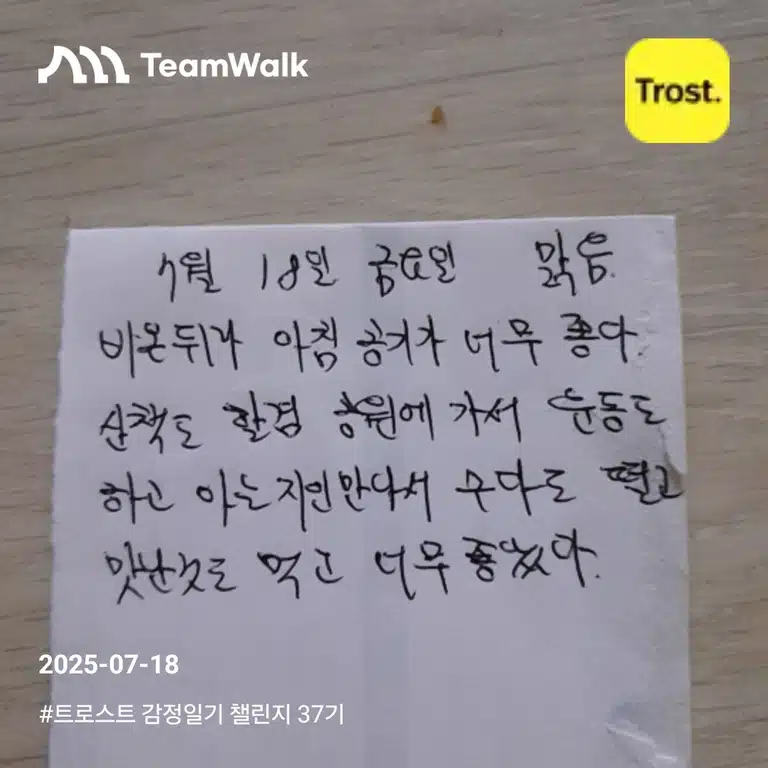 TeamWalk
Trost.
7월 18일 금요일 맑음.
비온뒤라 아침 공기가 너무 좋다
산책도 할겸 공원에 가서 운동도
하고 아는지인만나서 수다도 떨고
맛난것도 먹고 너무 좋았다.
2025-07-18
#트로스트 감정일기 챌린지 37기